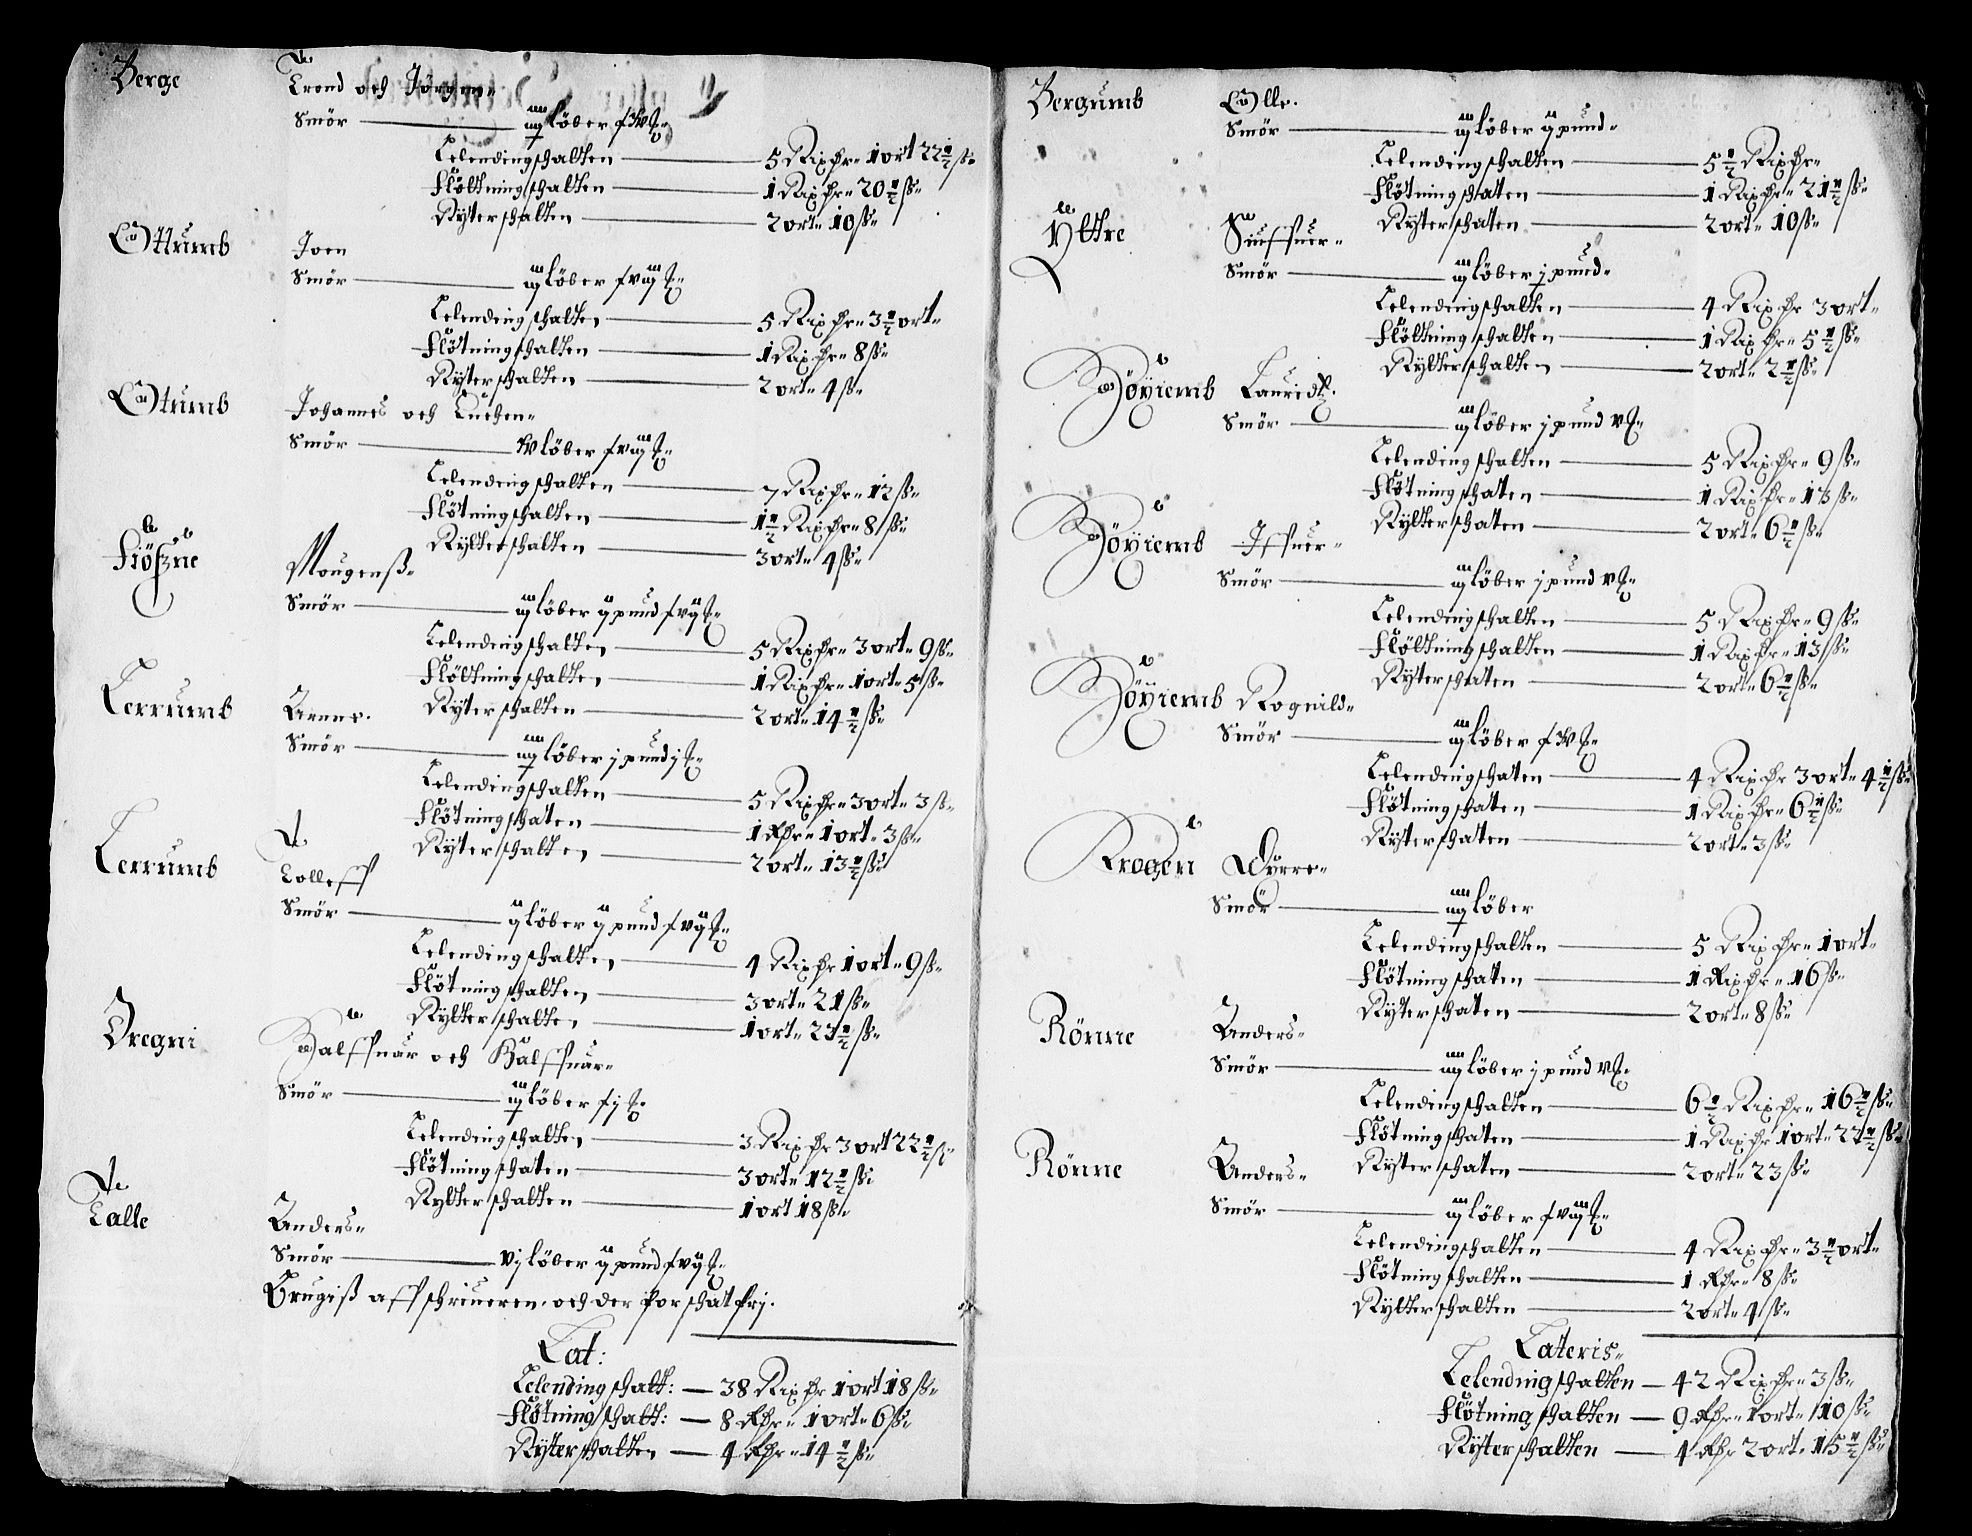 Berge Trond och Jörgen
Smör — iiij löber
Lelendingschatten — 5 Rixdr 1 ort 22½ ß
Flöttningschatten — 1 Rixdr 20½ ß
Rytterschatten — 2 ort 10 ß
Ottumb Joen
Smör — iij löber
Lelendingschatten — 5 Rixdr 3½ ort
Flötningschatten — 1 Rixdr 8 ß
Rytterschatten — 2 ort 4 ß
Ottumb Johannes och Suchen
Smör — löber
Lelendingschatten — 7 Rixdr 12 ß
Flötningschatten — 1½ Rixdr 8 ß
Rytterschatten — 3 ort 4 ß
Mougenß
Smör — iij löber ij pund
Lelendingschatten — 5 Rixdr 3 ort 9 ß
Flöttningschatten — 1 Rixdr 1 ort 5 ß
Rytterschatten — 2 ort 14½ ß
Lerrumb Arne
Smör — iiij löber j pund j
Lelendingschatten — 5 Rixdr 3 ort 3 ß
Flötningschaten — 1 Rdr 1 ort 3 ß
Rytterschatten — 2 ort 13½ ß
Lerrumb Tolleff
Smör — ij löber ij pund
Lelendingschatten — 4 Rixdr 1 ort 9 ß
Flötningschatten — 3 ort 21 ß
Rytterschatten — 1 ort 23½ ß
Dregni Halffuar och Halffuar
Smör — iij löber
Lelendingschatten — 3 Rixdr 3 ort 22½ ß
Flötningschaten — 3 ort 12½ ß
Rytterschatten — 1 ort 18 ß
Talle Anders
Smör — vj löber ij pund
Brugiß aff schriueren och der for schat frj.
Lat:
Lelendingschatt: — 38 Rixdr 1 ort 18 ß
Flötningschatt: — 8 Rdr 1 ort 6 ß
Rytterschatten — 4 Rdr 14½ ß
Bergumb Olle.
Smör — iij löber ij pund
Lelendingschatten — 5½ Rixdr
Flötningschaten — 1 Rixdr 21½ ß
Rytterschaten — 2 ort 10 ß
Yttre Siuffuer
Smör — iij löber j pund
Lelendingschatten — 4 Rixdr 3 ort
Flöttningschatten — 1 Rixdr 5½ ß
Rytterschatten — 2 ort 2½ ß
Höyiemb Lauridtz.
Smör — iij löber j pund
Lelendingschatten — 5 Rixdr 9 ß
Flötningschaten — 1 Rixdr 13 ß
Rytterschaten — 2 ort 6½ ß
Höyiemb Iffuer
Smör — iij löber j pund
Lelendingschatten — 5 Rixdr 9 ß
Flöttningschatten — 1 Rixdr 13 ß
Rytterschaten — 2 ort 6½ ß
Höyiemb Rognild
Smör — iij löber
Lelendingschaten — 4 Rixdr 3 ort 4½ ß
Flötningschaten — 1 Rixdr 6½ ß
Rytterschaten — 2 ort 3 ß
Krogen Dyrre
Smör — iiij löber
Lelendingschatten — 5 Rixdr 1 ort
Flötningschaten — 1 Rixdr 16 ß
Rytterschaten — 2 ort 8 ß
Rönne Anders
Smör — iiij löber j pund
Lelendingschatten — 6½ Rixdr 16½ ß
Flötningschatten — 1 Rixdr 1 ort 22½ ß
Rytterschaten — 2 ort 23 ß
Rönne Anders
Smör — iij löber
Lelendingschatten — 4 Rixdr 3½ ort
Flötningschatten — 1 Rdr 8 ß
Rytterschatten — 2 ort 4 ß
Lateris
Lelendingschatten — 42 Rixdr 3 ß
Flötningschatten — 9 Rdr 1 ort 10 ß
Rytterschatten — 4 Rdr 2 ort 15½ ß